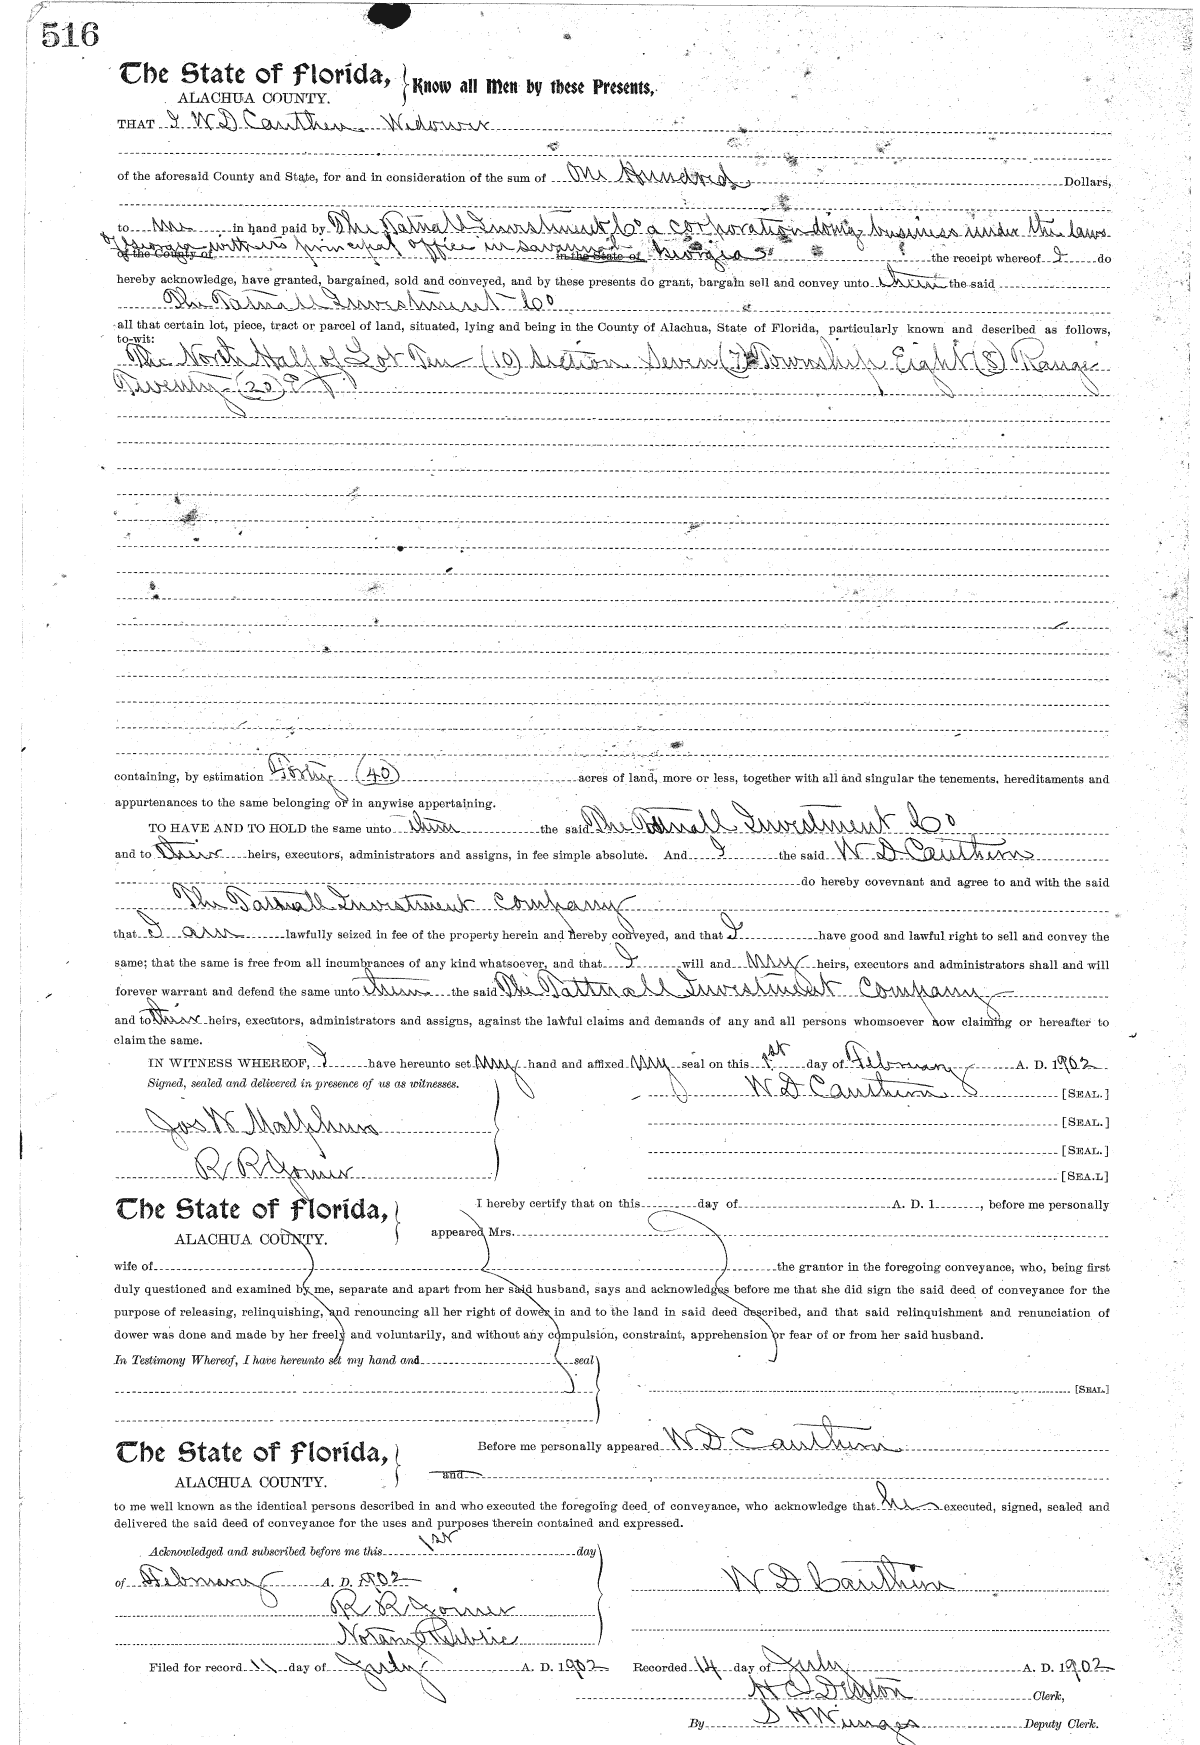 516
The State of Florida, Know all Men by these Presents,
ALACHUA COUNTY.
THAT I W D Cauthen Widower
of the aforesaid County and State, for and in consideration of the sum of One Hundred Dollars,
to me in hand paid by The Tatnall Investment Co a corporation doing business under the laws
of Georgia with its principal office in Savannah Georgia the receipt whereof I do
of the County of in the State of
hereby acknowledge, have granted, bargained, sold and conveyed, and by these presents do grant, bargain sell and convey unto them the said
The Tatnall Investment Co
all that certain lot, piece, tract or parcel of land, situated, lying and being in the County of Alachua, State of Florida, particularly known and described as follows,
to-wit:
The North Half of Lot Ten (10) Section Seven (7) Township Eight (8) Range
Twenty (20) E
containing, by estimation Forty (40) acres of land, more or less, together with all and singular the tenements, hereditaments and
appurtenances to the same belonging or in anywise appertaining.
TO HAVE AND TO HOLD the same unto them the said The Tatnall Investment Co
and to their heirs, executors, administrators and assigns, in fee simple absolute. And I the said W D Cauthen
do hereby covevnant and agree to and with the said
The Tatnall Investment Company
that I am lawfully seized in fee of the property herein and hereby conveyed, and that I have good and lawful right to sell and convey the
same; that the same is free from all incumbrances of any kind whatsoever, and that I will and My heirs, executors and administrators shall and will
forever warrant and defend the same unto them the said The Tattnall Investment Company
and to their heirs, executors, administrators and assigns, against the lawful claims and demands of any and all persons whomsoever now claiming or hereafter to
claim the same.
IN WITNESS WHEREOF, I have hereunto set My hand and affixed My seal on this 1st day of February A. D. 1902
Signed, sealed and delivered in presence of us as witnesses.
W D Cauthen [SEAL.]
Jos W Malphurs [SEAL.]
[SEAL.]
R R [SEA.L]
The State of Florida, I hereby certify that on this day of A. D. 1 , before me personally
ALACHUA COUNTY. appeared Mrs.
wife of the grantor in the foregoing conveyance, who, being first
duly questioned and examined by me, separate and apart from her said husband, says and acknowledges before me that she did sign the said deed of conveyance for the
purpose of releasing, relinquishing, and renouncing all her right of dower in and to the land in said deed described, and that said relinquishment and renunciation of
dower was done and made by her freely and voluntarily, and without any compulsion, constraint, apprehension or fear of or from her said husband.
In Testimony Whereof, I have hereunto set my hand and seal
[SEAL.]
The State of Florida, Before me personally appeared W D Cauthen
ALACHUA COUNTY. and
to me well known as the identical persons described in and who executed the foregoing deed of conveyance, who acknowledge that he executed, signed, sealed and
delivered the said deed of conveyance for the uses and purposes therein contained and expressed.
Acknowledged and subscribed before me this 1st day
of February A. D. 1902 W D Cauthen
R R
Notary Public
Filed for record 11 day of July A. D. 1902 Recorded 14 day of July A. D. 1902
H C Denton Clerk,
By S H Wienges Deputy Clerk.